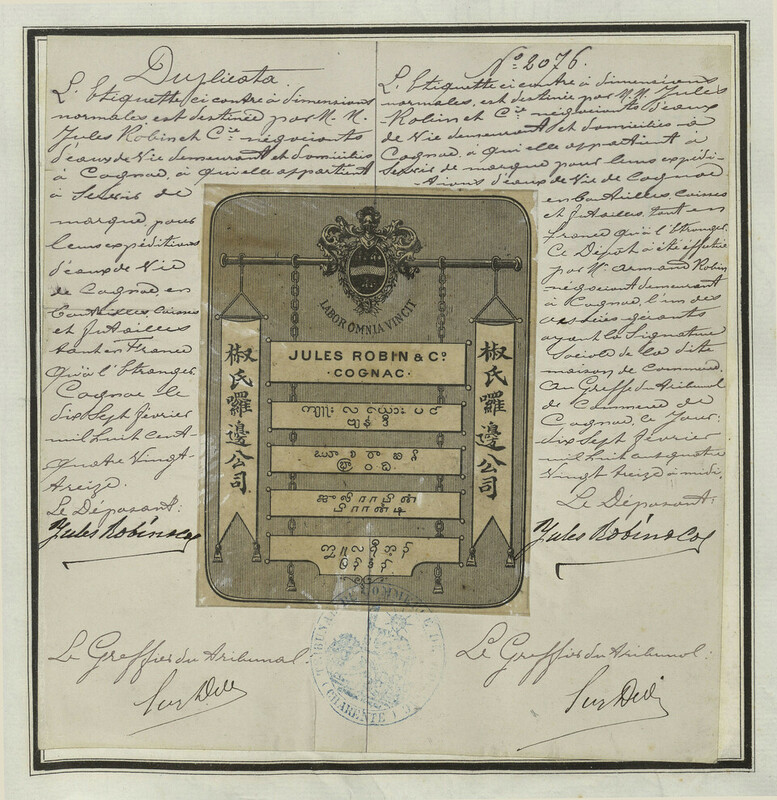 Duplicata.
L'Etiquette ci contre à dimensions
normales, est destinée par M. M.
Jules Robin et Cie négociants
d'eaux de Vie demeurant et domiciliés
à Cognac, à qui elle appartient
à Servir de
marque pour
leurs expéditions
d'eaux de Vie
de Cognac, en
bouteilles, caisses
et futailles
tant en France
qu'à l'Etranger.
Cognac le
dix Sept février
mil huit cent
quatre Vingt
treize.
Le Déposant:
Jules Robin & Co
Le Greffier du tribunal:
No 2076.
L'Etiquette ci contre à dimensions
normales, est destinée par M. M. Jules
Robin et Cie négociants d'eaux
de Vie demeurant et domiciliés à
Cognac, à qui elle appartient à
Servir de marque pour leurs expédi-
tions d'eaux de Vie de Cognac
en bouteilles, caisses
et futailles, tant en
france qu'à l'Etranger.
Ce Dépôt a été effectué
par Mr Armand Robin
négociant demeurant
à Cognac, l'un des
associés gérants
ayant la Signature
Sociale de la dite
maison de Commerce.
au Greffe du tribunal
de Commerce de
Cognac, ce jour:
dix Sept février
mil huit cent quatre
Vingt treize à midi.
Le Déposant:
Jules Robin & Co
Le Greffier du tribunal:
LABOR OMNIA VINCIT
JULES ROBIN & Co
·COGNAC·
椒氏囉邊公司
椒氏囉邊公司
TRIBUNAL DE COMMERCE DE
(CHARENTE)